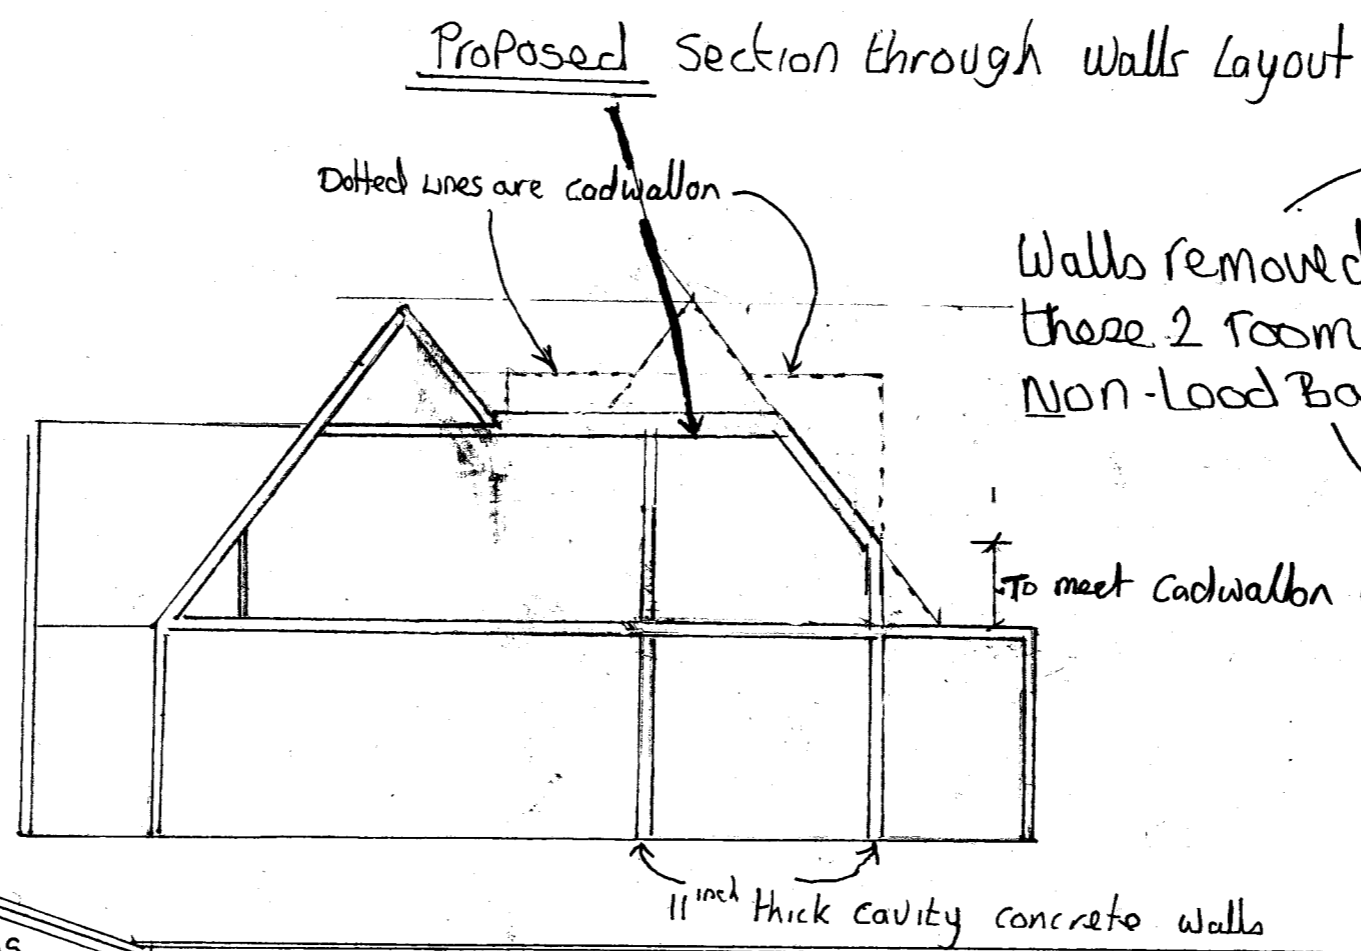 Proposed Section through walls Layout
Dotted Lines are cadwallon
Walls removed
these 2 room
Non-Load Ba
To meet Cadwallon
11 inch thick cavity concrete walls